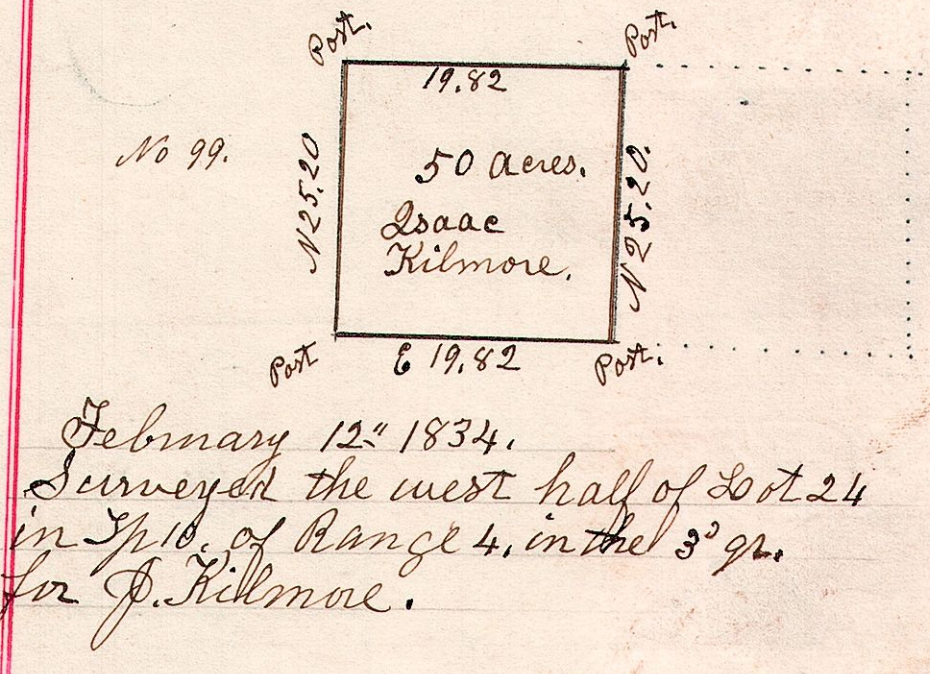 Post. Post.
19.82
No 99.
N 25.20
50 acres.
N 25.20.
Isaac
Kilmore.
Post E 19.82 Post.
February 12" 1834.
Surveyed the west half of Lot 24
in Tp 10. of Range 4. in the 3d qr.
for J. Kilmore.